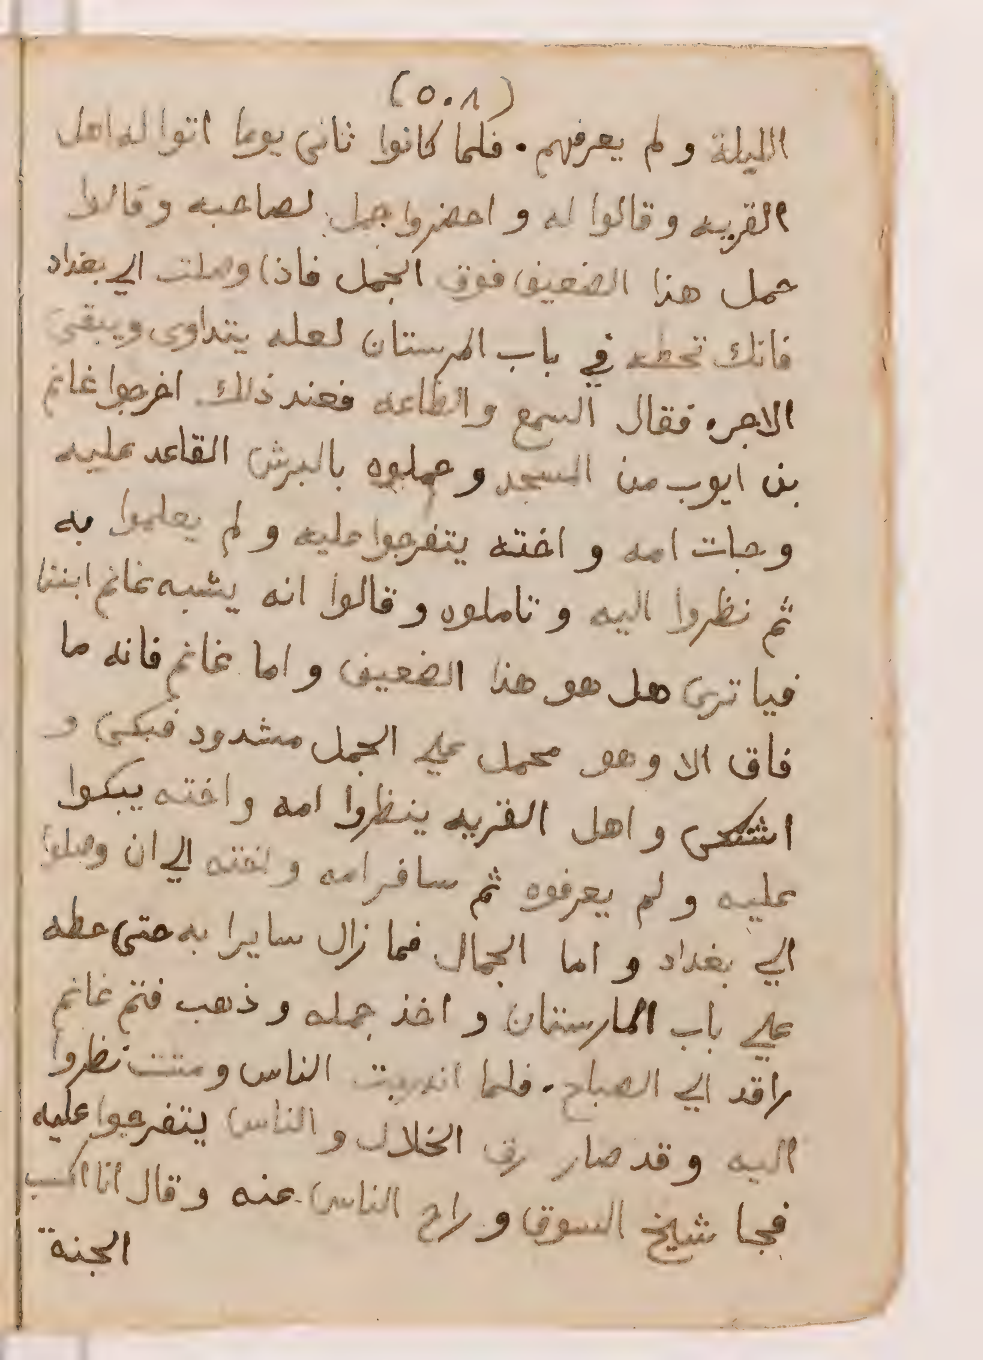 (٥٠٨)
الليلة و لم يعرفهم . فلما كانوا ثانى يوما اتوا له اهل
القريه وقالوا له و احضروا جمل لصاحبه وقالوا
حمل هذا الضعيف فوق الجمل فاذا وصلت الي بغداد
فانك تحطه في باب المرستان لعله يتداوى ويبقى
الاجره فقال السمع والطاعه فعند ذلك اخرجوا غانم
بن ايوب من المسجد و حملوه بالبرش القاعد عليه
وجات امه و اخته يتفرجوا عليه و لم يعلموا به
ثم نظروا اليه و تاملوه و قالوا انه يشبه غانم ابننا
فيا ترى هل هو هذا الضعيف و اما غانم فانه ما
فاق الا وهو محمل علي الجمل مشدود فبكى و
اشتكى و اهل القريه ينظروا امه واخته يبكوا
عليه و لم يعرفوه ثم سافر امه و اخته الي ان وصلوا
الي بغداد و اما الجمال فما زال سايرا به حتى حطه
علي باب المارستان و اخذ جمله و ذهب فتم غانم
راقد الي الصباح . فلما الناس و نظروا
اليه وقد صار رق الخلال و الناس يتفرجوا عليه
فجا شيخ السوق و راح الناس عنه وقال انا اكسب
الجنة